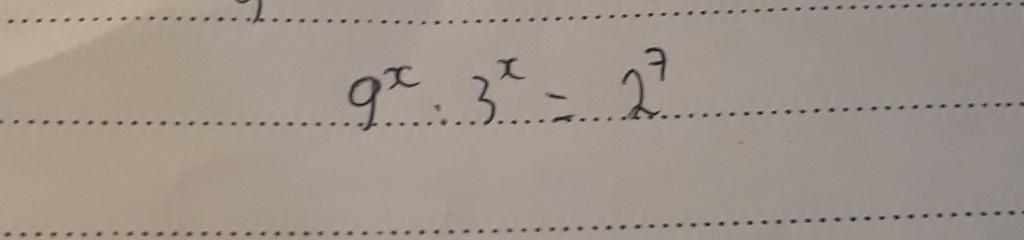 9ˣ · 3ˣ = 2⁷